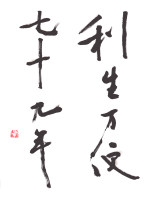 利生万便
七十九年